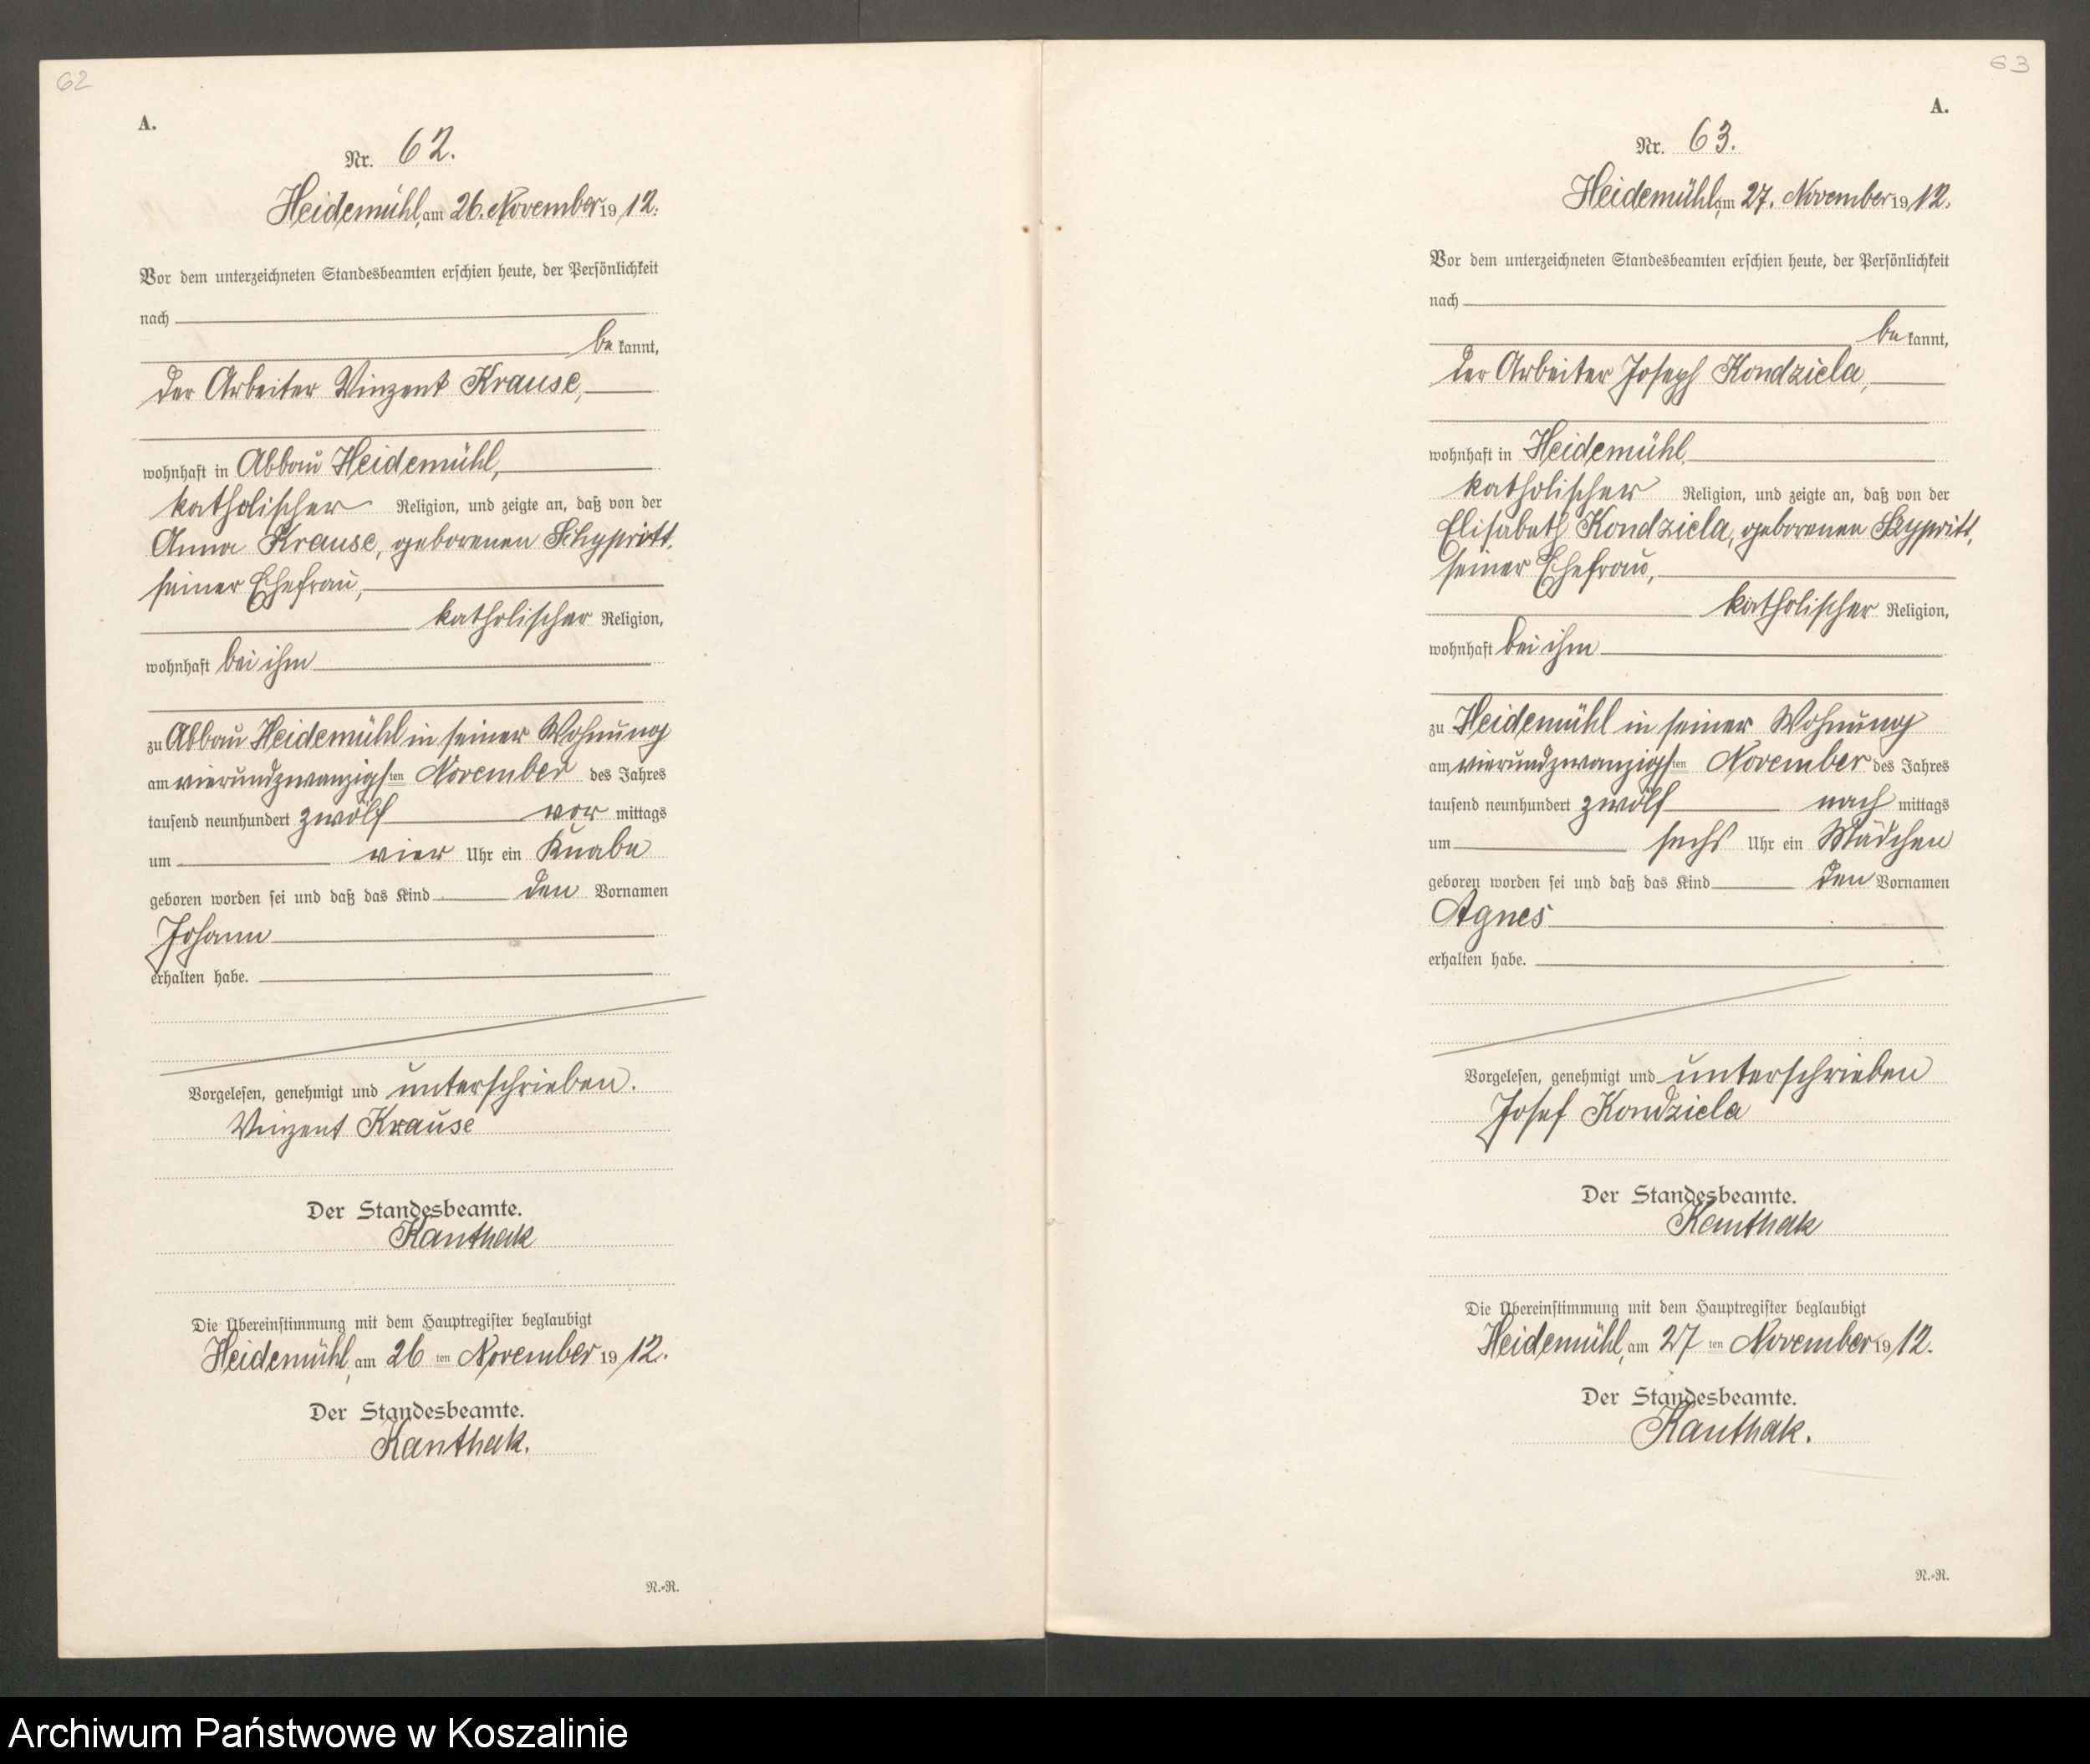 62
A.
Nr. 62.
Heidemühl, am 26. November 1912.
Vor dem unterzeichneten Standesbeamten erschien heute, der Persönlichkeit
nach
be kannt,
der Arbeiter Vinzent Krause,
wohnhaft in Abbau Heidemühl,
katholischer Religion, und zeigte an, daß von der
Anna Krause, geborenen Schypritt,
seiner Ehefrau,
katholischer Religion,
wohnhaft bei ihm
zu Abbau Heidemühl in seiner Wohnung
am vierundzwanzigsten November des Jahres
tausend neunhundert zwölf vor mittags
um vier Uhr ein Knabe
geboren worden sei und daß das Kind den Vornamen
Johann
erhalten habe.
Vorgelesen, genehmigt und unterschrieben.
Vinzent Krause
Der Standesbeamte.
Kanthak
Die Übereinstimmung mit dem Hauptregister beglaubigt
Heidemühl, am 26 ten November 1912.
Der Standesbeamte.
Kanthak.
N.-R.
63
A.
Nr. 63.
Heidemühl, am 27. November 1912.
Vor dem unterzeichneten Standesbeamten erschien heute, der Persönlichkeit
nach
be kannt,
der Arbeiter Joseph Kondziela,
wohnhaft in Heidemühl,
katholischer Religion, und zeigte an, daß von der
Elisabeth Kondziela, geborenen Szypritt,
seiner Ehefrau,
katholischer Religion,
wohnhaft bei ihm
zu Heidemühl in seiner Wohnung
am vierundzwanzigsten November des Jahres
tausend neunhundert zwölf nach mittags
um sechs Uhr ein Mädchen
geboren worden sei und daß das Kind den Vornamen
Agnes
erhalten habe.
Vorgelesen, genehmigt und unterschrieben
Josef Kondziela
Der Standesbeamte.
Kanthak
Die Übereinstimmung mit dem Hauptregister beglaubigt
Heidemühl, am 27 ten November 1912.
Der Standesbeamte.
Kanthak.
N.-R.
Archiwum Państwowe w Koszalinie